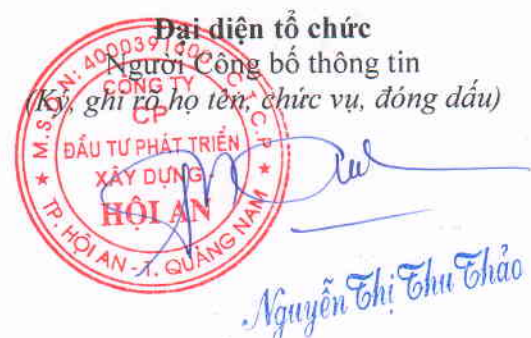 Đại diện tổ chức
Người Công bố thông tin
(Ký, ghi rõ họ tên, chức vụ, đóng dấu)
M.S.D.N: 4000391600 - C.T.C.P
CÔNG TY
CP
ĐẦU TƯ PHÁT TRIỂN
XÂY DỰNG
HỘI AN
TP. HỘI AN - T. QUẢNG NAM
Nguyễn Thị Thu Thảo